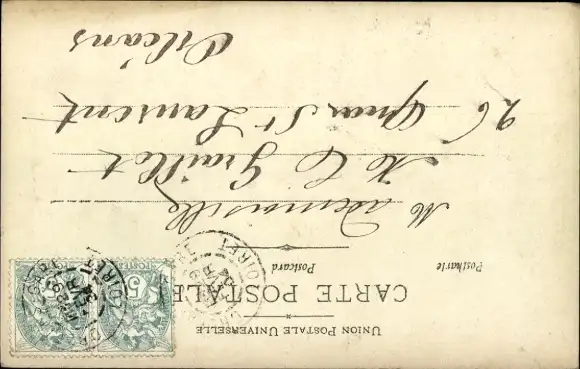 UNION POSTALE UNIVERSELLE
CARTE POSTALE
Postkarte Postcard
Mademoiselle
Graillot
26 Quai St Laurent
Orléans
5 5
LOIRET
LOIRET